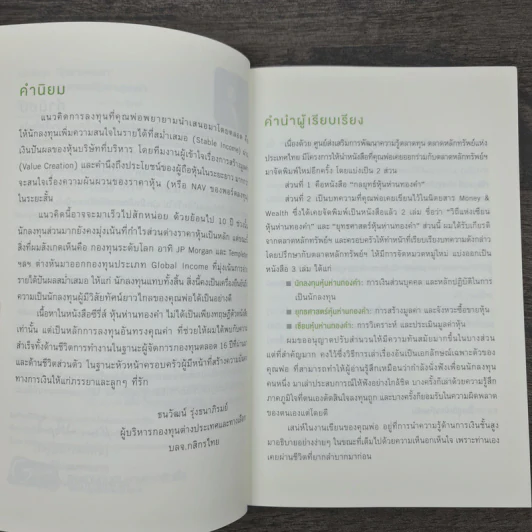 คำนิยม
แนวคิดการลงทุนที่คุณพ่อพยายามนำเสนอมาโดยตลอด
ให้นักลงทุนเพิ่มความสนใจในรายได้ที่สม่ำเสมอ (Stable Income)
เงินปันผลของหุ้นบริษัทที่บริหาร โดยทีมงานผู้เข้าใจเรื่องการสร้าง
(Value Creation) และคำนึงถึงประโยชน์ของผู้ถือหุ้นในระยะยาว
จะสนใจเรื่องความผันผวนของราคาหุ้น (หรือ NAV ของพอร์ต
ในระยะสั้น
แนวคิดนี้อาจจะมาเร็วไปสักหน่อย ด้วยย้อนไป 10 ปี
นักลงทุนส่วนมากยังคงมุ่งเน้นที่กำไรส่วนต่างราคาหุ้นเป็นหลัก
สิ่งที่ผมสังเกตเห็นคือ กองทุนระดับโลก อาทิ JP Morgan และ
ฯลฯ ต่างหันมาออกกองทุนประเภท Global Income ที่มุ่งเน้น
รายได้ปันผลสม่ำเสมอ ให้แก่ นักลงทุนแทบทั้งสิ้น สิ่งนี้คงเป็นเครื่อง
ความเป็นนักลงทุนผู้มีวิสัยทัศน์ยาวไกลของคุณพ่อได้เป็นอย่างดี
เนื้อหาในหนังสือซีรีส์ หุ้นห่านทองคำ ไม่ได้เป็นเพียงทฤษฎี
เท่านั้น แต่เป็นหลักการลงทุนอันทรงคุณค่า ที่ช่วยให้ผมได้พบกับ
สำเร็จทั้งด้านชีวิตการทำงานในฐานะผู้จัดการกองทุนตลอด 16 ปีที่ผ่าน
และด้านชีวิตส่วนตัว ในฐานะหัวหน้าครอบครัวผู้มีหน้าที่สร้างความ
ทางการเงินให้แก่ภรรยาและลูกๆ ที่รัก
ธนวัฒน์ รุ่งธนาภิรมย์
ผู้บริหารกองทุนต่างประเทศและ
บลจ.กสิกรไทย
คำนำผู้เรียบเรียง
เนื่องด้วย ศูนย์ส่งเสริมการพัฒนาความรู้ตลาดทุน ตลาดหลักทรัพย์แห่ง
ประเทศไทย มีโครงการให้นำหนังสือที่คุณพ่อเคยออกร่วมกับตลาดหลักทรัพย์ฯ
มาจัดพิมพ์ใหม่อีกครั้ง โดยแบ่งเป็น 2 ส่วน
ส่วนที่ 1 คือหนังสือ "กลยุทธ์หุ้นห่านทองคำ"
ส่วนที่ 2 เป็นบทความที่คุณพ่อเคยเขียนไว้ในนิตยสาร Money &
Wealth ซึ่งได้เคยจัดพิมพ์เป็นหนังสือแล้ว 2 เล่ม ชื่อว่า "วิธีแห่งเซียน
หุ้นห่านทองคำ" และ "ยุทธศาสตร์หุ้นห่านทองคำ" ส่วนนี้ ผมได้รับเกียรติ
จากตลาดหลักทรัพย์ฯ และครอบครัวให้ทำหน้าที่เรียบเรียงบทความดังกล่าว
โดยปรึกษากับตลาดหลักทรัพย์ฯ ให้มีการจัดหมวดหมู่ใหม่ แบ่งออกเป็น
หนังสือ 3 เล่ม ได้แก่
■ นักลงทุนหุ้นห่านทองคำ: การเงินส่วนบุคคล และหลักปฏิบัติในการ
เป็นนักลงทุน
■ ยุทธศาสตร์หุ้นห่านทองคำ: การสร้างมูลค่า และจังหวะซื้อขายหุ้น
■ เซียนหุ้นห่านทองคำ: การวิเคราะห์ และประเมินมูลค่าหุ้น
ผมขออนุญาตปรับสำนวนให้มีความทันสมัยมากขึ้นในบางส่วน
แต่ที่สำคัญมาก คงไว้ซึ่งวิธีการเล่าเรื่องอันเป็นเอกลักษณ์เฉพาะตัวของ
คุณพ่อ ที่สามารถทำให้ผู้อ่านรู้สึกเหมือนว่ากำลังนั่งฟังเพื่อนนักลงทุน
คนหนึ่ง มาเล่าประสบการณ์ให้ฟังอย่างใกล้ชิด บางครั้งก็เล่าด้วยความรู้สึก
ภาคภูมิใจที่ตนเองตัดสินใจลงทุนถูก และบางครั้งก็ยอมรับในความผิดพลาด
ของตนเองแต่โดยดี
เสน่ห์ในงานเขียนของคุณพ่อ อยู่ที่การนำความรู้ด้านการเงินชั้นสูง
มาอธิบายอย่างง่ายๆ ในขณะที่เต็มไปด้วยความเห็นอกเห็นใจ เพราะท่านเอง
เคยผ่านชีวิตที่ยากลำบากมาก่อน